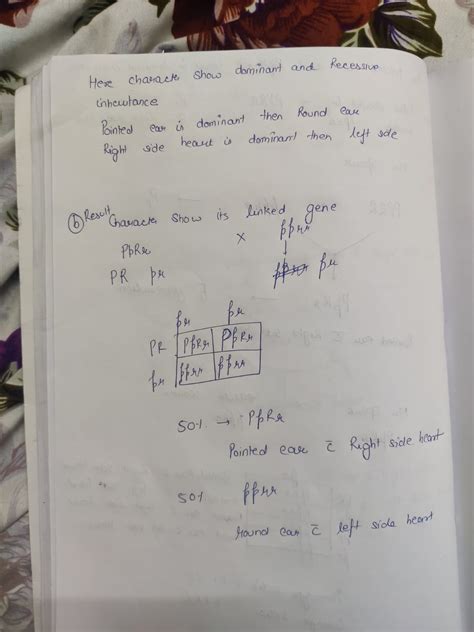 Here character show dominant and Recessive
inheritance
Pointed ear is dominant then Round ear
Right side heart is dominant then left side
(b) Result Character show its linked gene
PpRr × pprr
PR pr pprr pr
pr pr
PR PpRr PpRr
pr pprr pprr
50% → PpRr
Pointed ear c̄ Right side heart
50% pprr
round ear c̄ left side heart